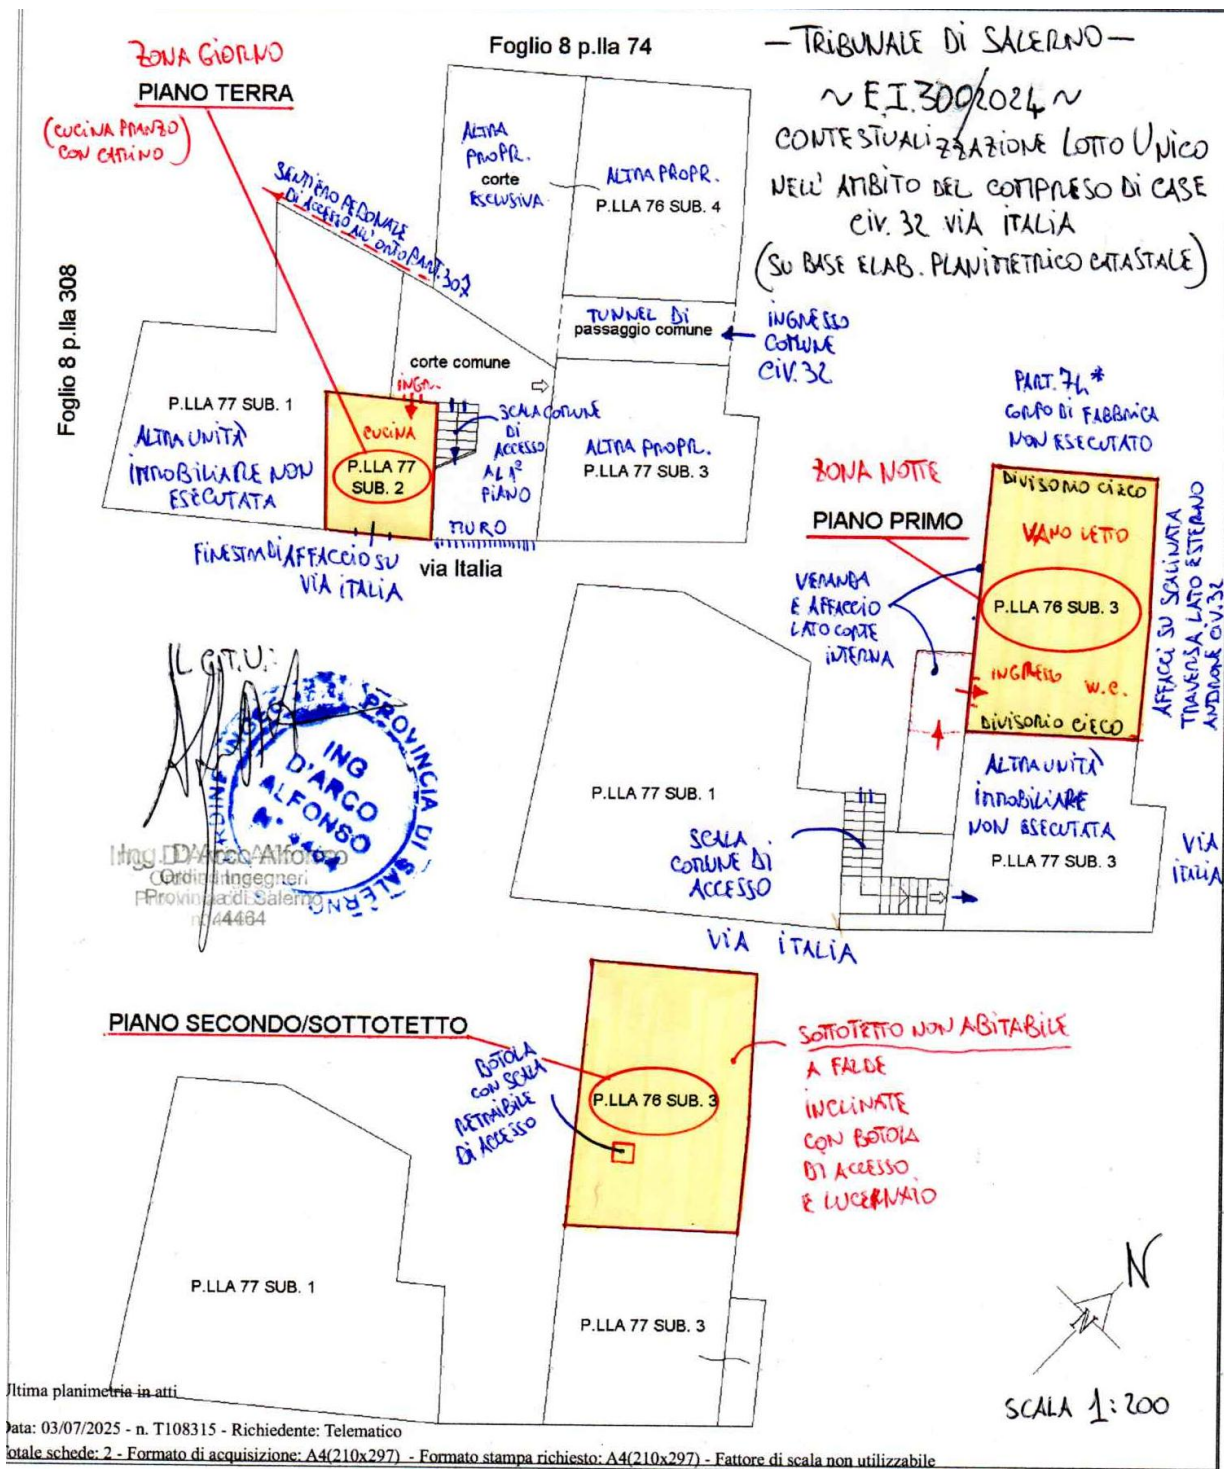 — TRIBUNALE DI SALERNO —
~ E.I. 300/2024 ~
CONTESTUALIZZAZIONE LOTTO UNICO
NELL' AMBITO DEL COMPRESO DI CASE
CIV. 32 VIA ITALIA
(SU BASE ELAB. PLANIMETRICO CATASTALE)
ZONA GIORNO
PIANO TERRA
(CUCINA PRANZO)
CON CAMINO
Foglio 8 p.lla 74
Foglio 8 p.lla 308
SENTIERO PEDONALE
DI ACCESSO ALL'ORTO PART. 307
ALTRA
PROPR.
corte
ESCLUSIVA
ALTRA PROPR.
P.LLA 76 SUB. 4
TUNNEL DI
passaggio comune
INGRESSO
COMUNE
CIV. 32
corte comune
INGR.
P.LLA 77 SUB. 1
ALTRA UNITÀ
IMMOBILIARE NON
ESECUTATA
CUCINA
P.LLA 77
SUB. 2
SCALA COMUNE
DI
ACCESSO
AL 1°
PIANO
ALTRA PROPR.
P.LLA 77 SUB. 3
MURO
FINESTRA DI AFFACCIO SU
VIA ITALIA
via Italia
PART. 74 *
CORPO DI FABBRICA
NON ESECUTATO
ZONA NOTTE
PIANO PRIMO
DIVISORIO CIECO
VANO LETTO
P.LLA 76 SUB. 3
INGRESSO
W.C.
DIVISORIO CIECO
VERANDA
E AFFACCIO
LATO CORTE
INTERNA
AFFACCI SU SCALINATA
TRAVERSA LATO ESTERNO
ANDRONE CIV. 32
ALTRA UNITÀ
IMMOBILIARE
NON ESECUTATA
P.LLA 77 SUB. 3
P.LLA 77 SUB. 1
SCALA
COMUNE DI
ACCESSO
VIA
ITALIA
VIA ITALIA
IL C.T.U.:
ORDINE INGEGNERI PROVINCIA DI SALERNO
ING
D'ARCO
ALFONSO
Ing. D'Arco Alfonso
Ordine Ingegneri
Provincia di Salerno
n. 4464
PIANO SECONDO/SOTTOTETTO
BOTOLA
CON SCALA
RETRAIBILE
DI ACCESSO
P.LLA 76 SUB. 3
SOTTOTETTO NON ABITABILE
A FALDE
INCLINATE
CON BOTOLA
DI ACCESSO
E LUCERNAIO
P.LLA 77 SUB. 1
P.LLA 77 SUB. 3
N
N
SCALA 1:200
Ultima planimetria in atti
Data: 03/07/2025 - n. T108315 - Richiedente: Telematico
Totale schede: 2 - Formato di acquisizione: A4(210x297) - Formato stampa richiesto: A4(210x297) - Fattore di scala non utilizzabile